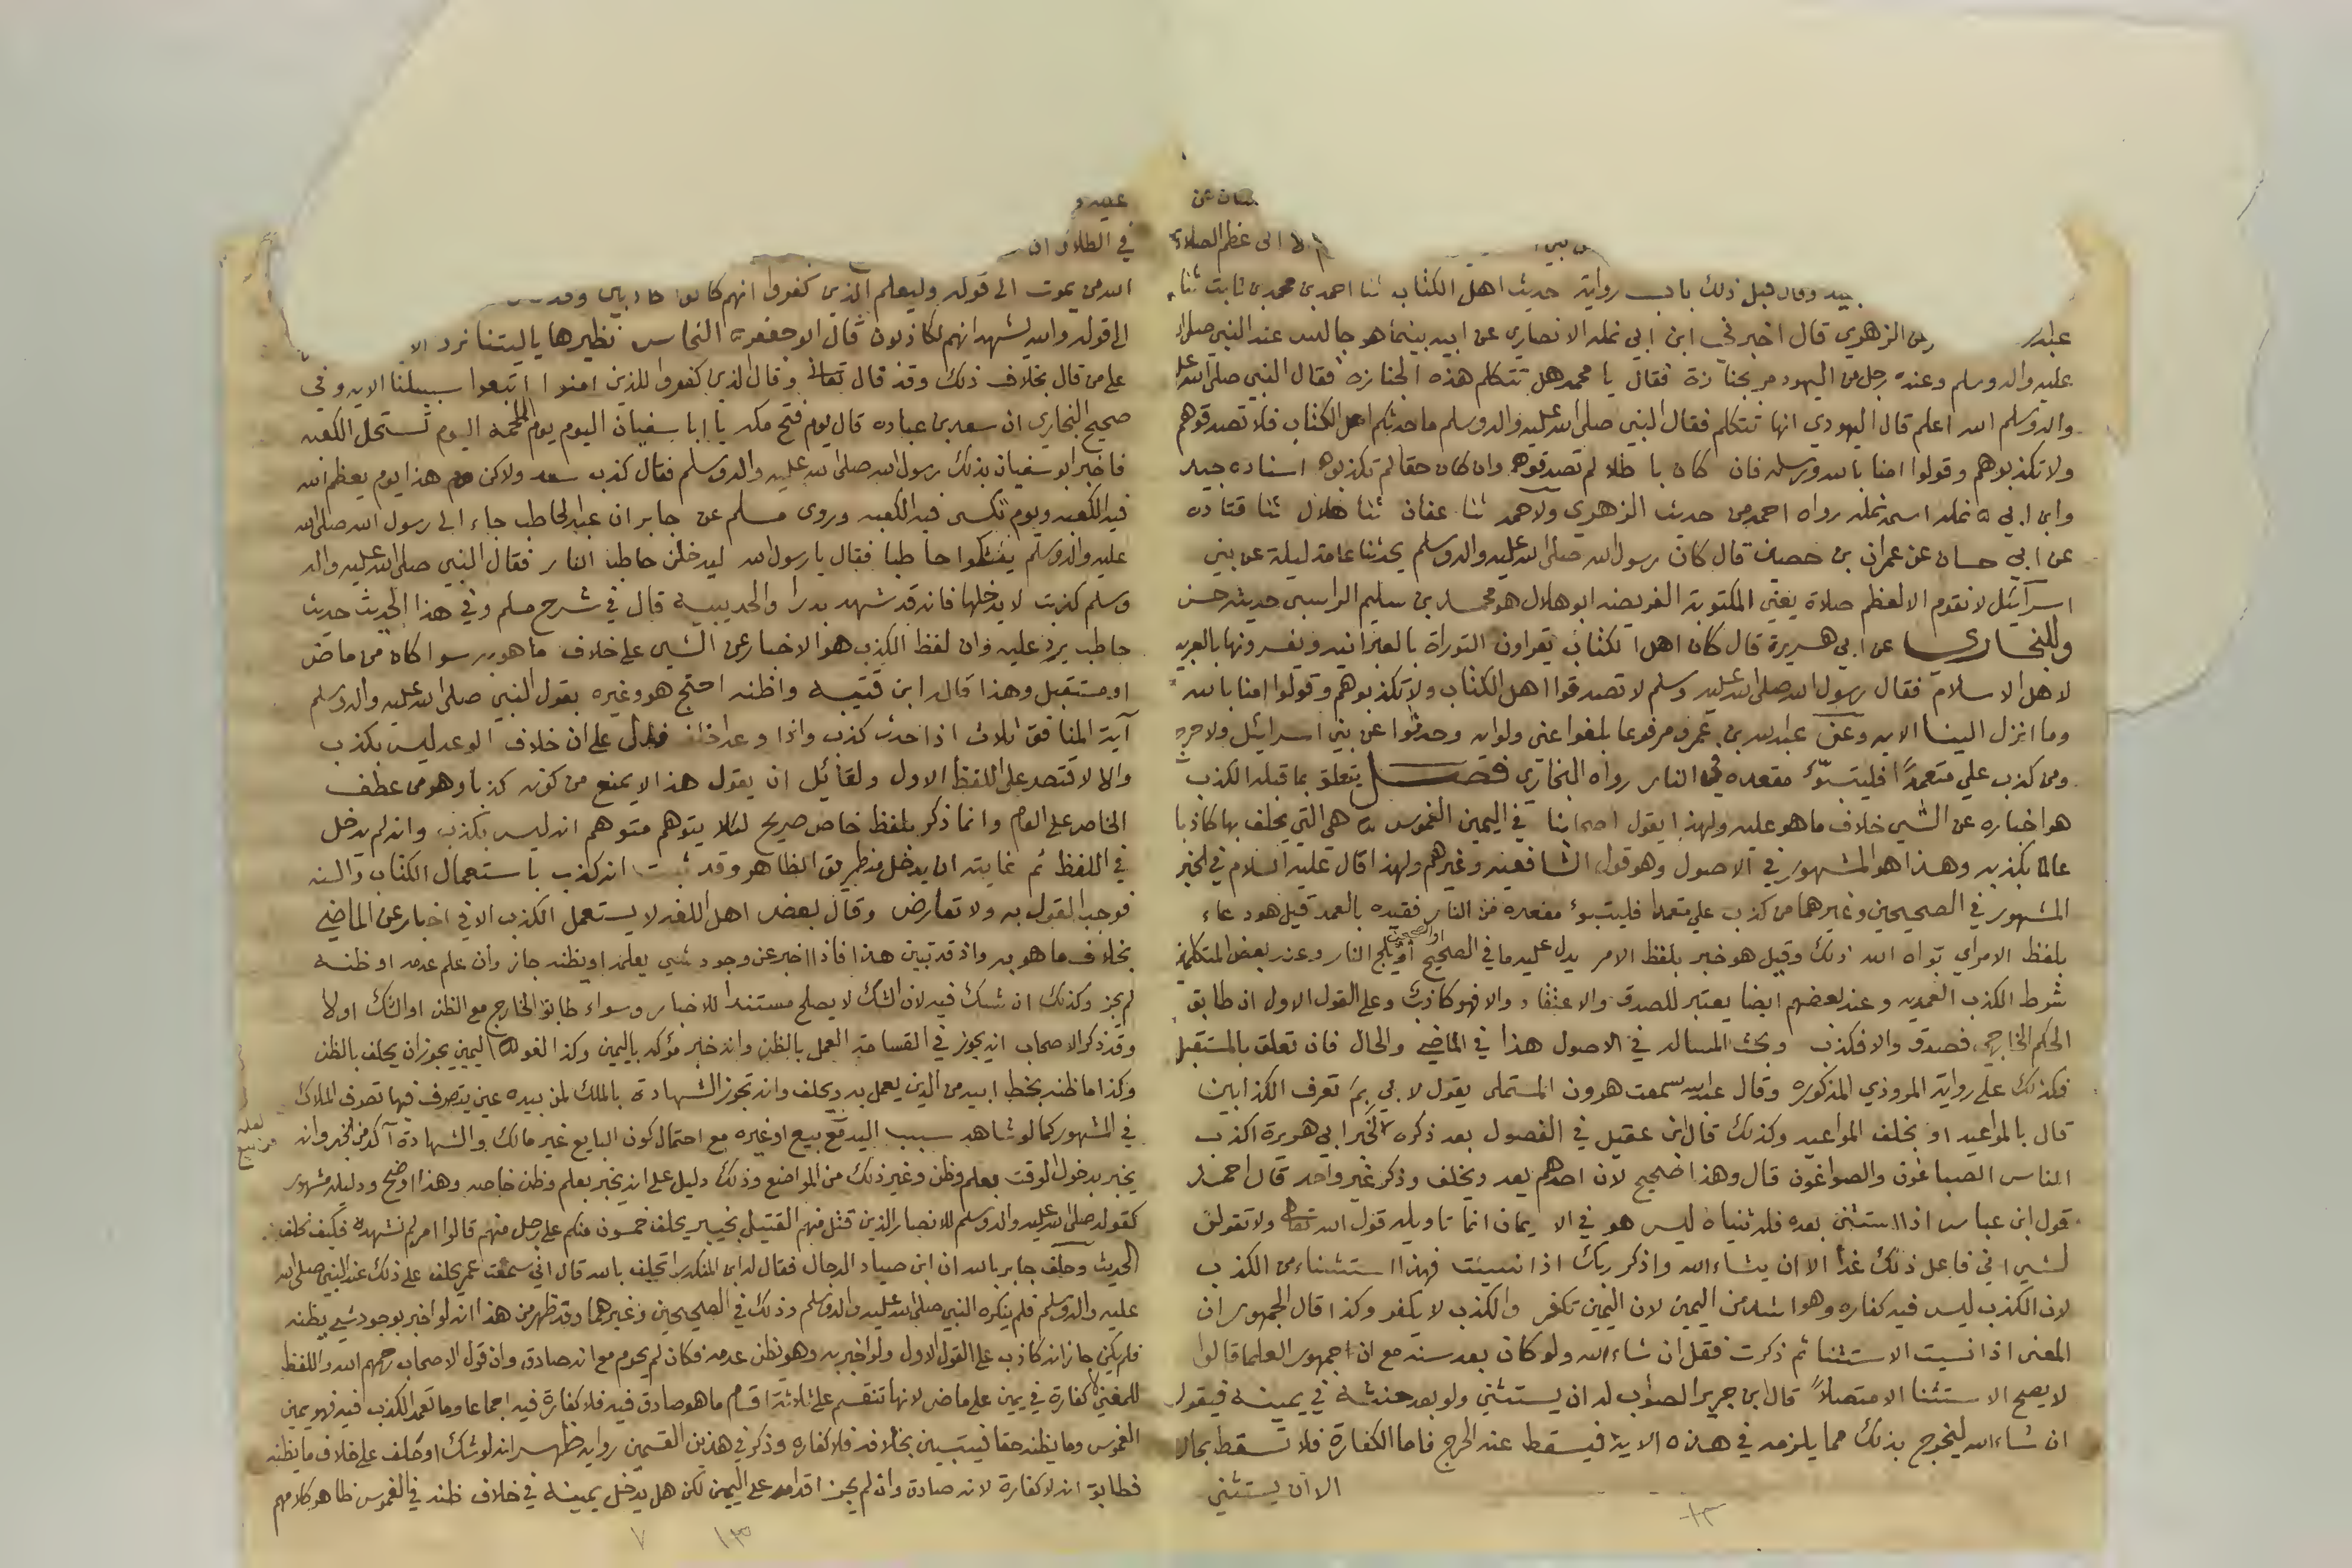 عن
الى عظم الصلاة
قبل ذلك باب رواية حديث اهل الكتاب ثنا احمد بن محمد بن ثابت ثنا
عبد عن الزهري قال اخبرني ابن ابي نمله الانصاري عن ابيه بينما هو جالس عند النبي صلى الله
عليه واله وسلم وعنده رجل من اليهود مر بجنازة فقال يا محمد هل تتكلم هذه الجنازه فقال النبي صلى الله عليه
واله وسلم الله اعلم قال اليهودي انها تتكلم فقال النبي صلى الله عليه واله وسلم ما حدثكم اهل الكتاب فلا تصدقوهم
ولا تكذبوهم وقولوا امنا بالله ورسله فان كان باطلا لم تصدقوهم وان كان حقا لم تكذبوه اسناده جيد
وابن ابي نمله اسمه نمله رواه احمد من حديث الزهري ولاحمد ثنا عفان ثنا هلال ثنا قتاده
عن ابي حسان عن عمران بن حصين قال كان رسول الله صلى الله عليه واله وسلم يحدثنا عامة ليلة عن بني
اسرآئيل لا نقوم الا لعظم صلاة يعني المكتوبة الفريضه ابو هلال هو محمد بن سليم الراسبي حديثه حسن
وللبخاري عن ابي هريرة قال كان اهل الكتاب يقراون التوراة بالعبرانيه ويفسرونها بالعربيه
لاهل الاسلام فقال رسول الله صلى الله عليه وسلم لا تصدقوا اهل الكتاب ولا تكذبوهم وقولوا امنا بالله
وما انزل الينا الايه وعن عبدالله بن عمرو مرفوعا بلغوا عني ولوايه وحدثوا عن بني اسرائيل ولا حرج
ومن كذب علي متعمدًا فليتبوّء مقعده في النار رواه البخاري فصل يتعلق بما قبله الكذب
هو اخباره عن الشي خلاف ما هو عليه ولهذا يقول اصحابنا في اليمين الغموس هي التي يحلف بها كاذبا
عالما بكذبه وهذا هو المشهور في الاصول وهو قول الشافعيه وغيرهم ولهذا قال عليه السلام في الخبر
المشهور في الصحيحين وغيرهما من كذب علي متعمدا فليتبوء مقعده من النار فقيده بالعمد قيل هو دعاء
بلفظ الامر اي بواه الله ذلك وقيل هو خبر بلفظ الامر يدل عليه ما في الصحيح او الصحيحين يلج النار وعند بعض المتكلمة
شرط الكذب العمديه وعند بعضهم ايضا يعتبر للصدق والاعتقاد والا فهو كاذب وعلى القول الاول ان طابق
الحكم الخارجي فصدق والا فكذب وبحث المساله في الاصول هذا في الماضي والحال فان تعلق بالمستقبل
فكذلك على رواية المروذي المذكوره وقال عبدالله سمعت هرون المستملى يقول لابي بم تعرف الكذابين
قال بالمواعيد او بخلف المواعيد وكذلك قال ابن عقيل في الفصول بعد ذكره لخبر ابي هريرة اكذب
الناس الصباغون والصواغون قال وهذا صحيح لان احدهم يعد ويخلف وذكر غير واحد قال احمد
قول ابن عباس اذا استثنى بعده فله ثنياه ليس هو في الايمان انما تاويله قول الله تعالى ولا تقولن
لشيء اني فاعل ذلك غدًا الا ان يشاء الله واذكر ربك اذا نسيت فهذا استثناء من الكذب
لان الكذب ليس فيه كفاره وهو اشد من اليمين لان اليمين تكفر والكذب لا يكفر وكذا قال الجمهور ان
المعنى اذا نسيت الاستثنا ثم ذكرت فقل ان شاء الله ولو كان بعد سنه مع ان جمهور العلما قالوا
لا يصح الاستثنا الا متصلاً قال ابن جرير الصواب له ان يستثني ولو بعد حنثه في يمينه فيقول
ان شاء الله ليخرج بذلك مما يلزمه في هذه الاية فيسقط عنه الحرج فاما الكفارة فلا تسقط بحال
الا ان يستثني
عليه و
في الطلاق ان
الله من يموت الى قوله وليعلم الذين كفروا انهم كانوا كاذبين
الى قوله والله يشهد انهم لكاذبون قال ابو جعفر النحاس نظيرها ياليتنا نرد
على من قال بخلاف ذلك وقد قال تعالى وقال الذين كفروا للذين امنوا اتبعوا سبيلنا الايه وفي
صحيح البخاري ان سعد بن عباده قال يوم فتح مكه يا ابا سفيان اليوم يوم الملحمه اليوم تستحل الكعبه
فاخبر ابو سفيان بذلك رسول الله صلى الله عليه واله وسلم فقال كذب سعد ولاكن هذا يوم يعظم الله
فيه الكعبه ويوم تكسى فيه الكعبه وروى مسلم عن جابر ان عبد الحاطب جاء الى رسول الله صلى الله
عليه واله وسلم يشكوا حاطبا فقال يا رسول الله ليدخلن حاطب النار فقال النبي صلى الله عليه واله
وسلم كذبت لا يدخلها فانه قد شهد بدرا والحديبيه قال في شرح مسلم وفي هذا الحديث حديث
حاطب يرد عليه وان لفظ الكذب هو الاخبار عن الشي على خلاف ما هو به سوا كان من ماض
او مستقبل وهذا قاله ابن قتيبه واظنه احتج هو وغيره بقول النبي صلى الله عليه واله وسلم
آية المنافق ثلاث اذا حدث كذب واذا وعد اخلف فدل على ان خلاف الوعد ليس بكذب
والا لاقتصد على اللفظ الاول ولقائل ان يقول هذا لا يمنع من كونه كذبا وهو من عطف
الخاص على العام وانما ذكر بلفظ خاص صريح لئلا يتوهم متوهم انه ليس بكذب وانه لم يدخل
في اللفظ ثم غايته ان يدخل من طريق الظاهر وقد ثبت انه كذب باستعمال الكتاب والسنه
فوجب القول به ولا تعارض وقال بعض اهل اللغه لا يستعمل الكذب الا في اخبار عن الماضي
بخلاف ما هو به واذ قد تبين هذا فاذا اخبر عن وجود شي يعلمه او يظنه جاز وان علم عدمه او ظنه
لم يجز وكذلك ان شك فيه لان الشك لا يصلح مستندا للاخبار وسواء طابق الخارج مع الظن او الشك او لا
وقد ذكر الاصحاب انه يجوز في القسامة العمل بالظن وانه خبر مؤكد باليمين وكذا لغو اليمين يجوز ان يحلف بالظن
وكذا ما ظنه بخط ابيه من الدين يعمل به ويحلف وانه تجوز الشهادة بالملك لمن بيده عين يتصرف فيها تصرف الملاك
في المشهور كما لو شاهد سبب اليد مع بيع او غيره مع احتمال كون البايع غير مالك والشهادة آكد من الخبر وانه
يخبر بدخول الوقت بعلم وظن وغير ذلك من المواضع وذلك دليل على انه يخبر بعلم وظن خاصه وهذا اوضح ودليله مشهور
كقوله صلى الله عليه واله وسلم للانصار الذين قتل منهم القتيل بخيبر يحلف خمسون منكم على رجل منهم قالوا امر لم نشهده فكيف نحلف
الحديث وحلف جابر بالله ان ابن صياد الدجال فقال له ابن المنكدر اتحلف بالله قال اني سمعت عمر يحلف على ذلك عند النبي صلى الله
عليه واله وسلم فلم ينكره النبي صلى الله عليه واله وسلم وذلك في الصحيحين وغيرهما وقد ظهر من هذا انه لو اخبر بوجود شي يظنه
فلم يكن جاز انه كاذب على القول الاول ولو اخبر به وهو يظن عدمه فكان لم يحرم مع انه صادق وان قول الاصحاب رحمهم الله واللفظ
للمغني لا كفارة في يمين على ماض لانها تنقسم على ثلاثة اقسام ما هو صادق فيه فلا كفارة فيه اجماعا وما تعمد الكذب فيه فهو يمين
الغموس وما يظنه حقا فيتبين بخلافه فلا كفاره وذكر في هذين القسمين روايه ظهر انه لو شك او حلف على خلاف ما يظنه
فطابق انه لا كفارة لانه صادق وان لم يجز اقدامه على اليمين لكن هل يدخل يمينه في خلاف ظنه في الغموس ظاهر كلامهم
لعله
من بيع
١٣
٧